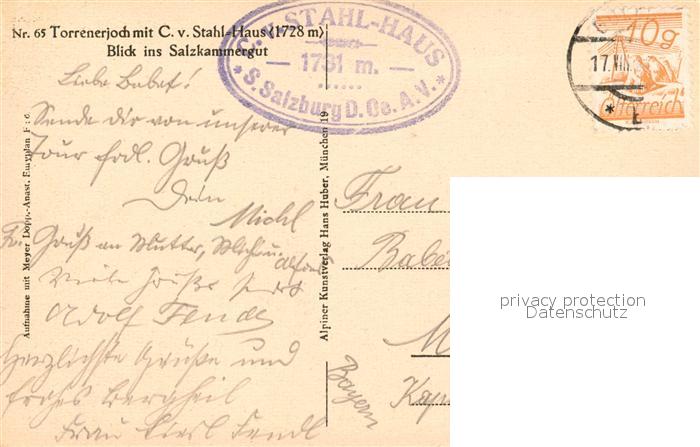 Nr. 65 Torrenerjoch mit C. v. Stahl-Haus (1728 m)
Blick ins Salzkammergut
C. v. STAHL-HAUS
1731 m.
* S. Salzburg D. Oe. A. V. *
17. VIII
10g
Österreich
Liebe Babet!
Sende dir von unserer
Tour frdl. Gruß
Dein
Michl
Gruß an Mutter,
Viele Grüße
Adolf Fendl
Herzlichste Grüße und
frohes Bergheil
Frau Liesl Fendl
Aufnahme mit Meyer Dopp.-Anast. Euryplan F:6
Alpiner Kunstverlag Hans Huber, München 19
Frau
M
Kap
Bayern
privacy protection
Datenschutz